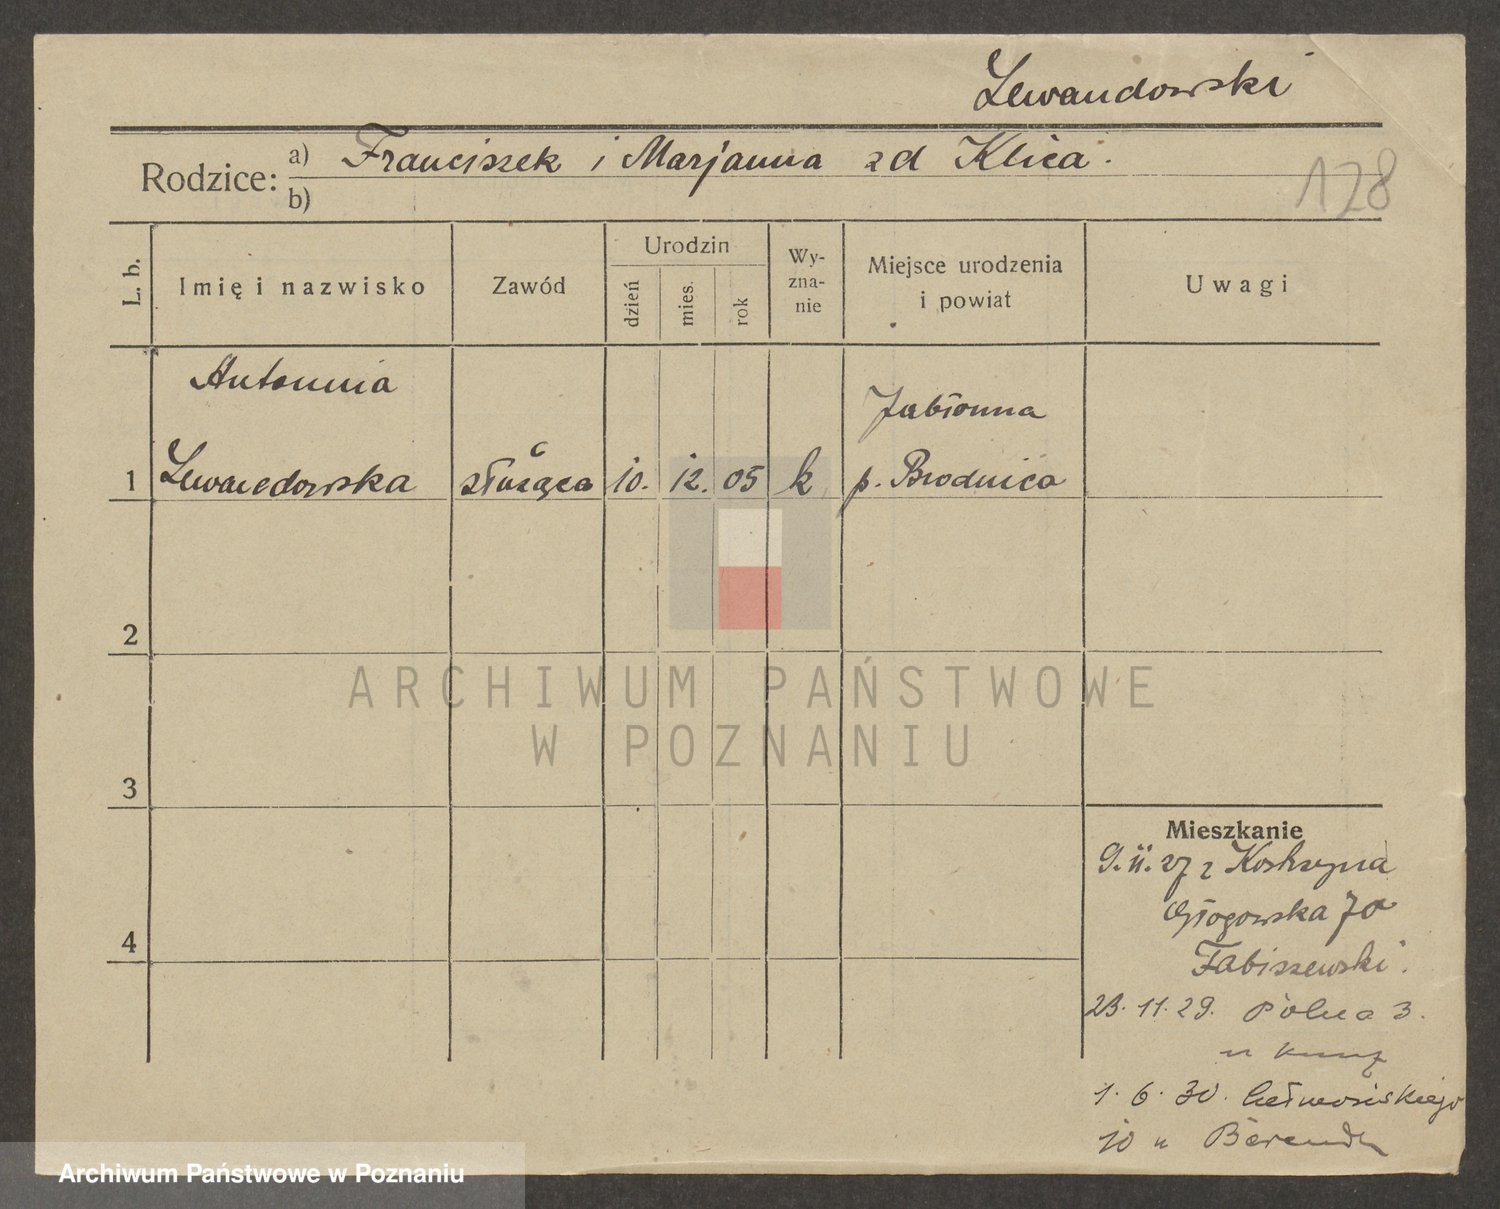 Lewandowski
Rodzice: a) Franciszek i Marjanna zd Klica.
b)
128
L. b.
Imię i nazwisko
Zawód
Urodzin
dzień
mies.
rok
Wy-
zna-
nie
Miejsce urodzenia
i powiat
Uwagi
Antonnia
Jabłonna
1 Lewandowska służąca 10. 12. 05 k p. Brodnica
2
ARCHIWUM PAŃSTWOWE
W POZNANIU
3
Mieszkanie
9.11.27 z Kostrzyna
Głogowska 70
Fabiszewski.
4
23.11.29. Polna 3.
u
1.6.30.
10 u Berendt
Archiwum Państwowe w Poznaniu